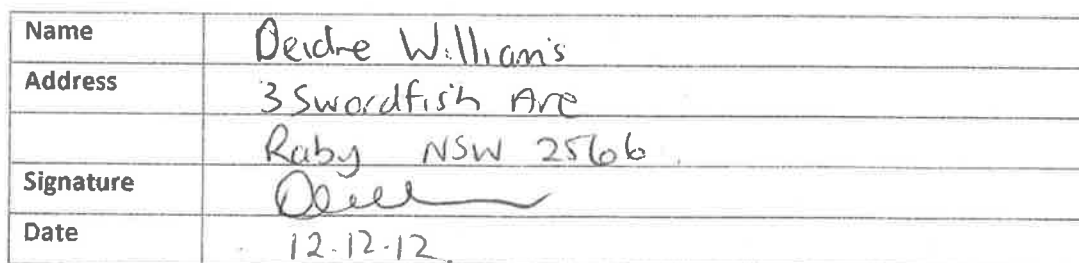 Name Deidre Williams
Address 3 Swordfish Ave
Raby NSW 2566
Signature
Date 12.12.12